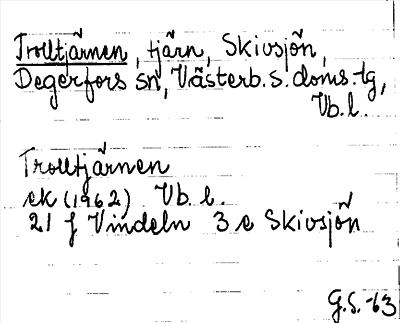 Trolltjärnen, tjärn, Skivsjön,
Degerfors sn, Västerb. s. doms.-tg,
Vb. l.
Trolltjärnen
ek (1962) Vb. l.
21 f Vindeln 3 e Skivsjön
G.S. -63